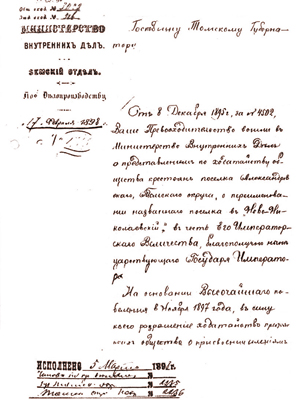 МИНИСТЕРСТВО
ВНУТРЕННИХЪ ДѢЛЪ.
ЗЕМСКІЙ ОТДѢЛЪ.
По Дѣлопроизводству
17 Февраля 1898 г.
Господину Томскому Губерна-
тору
Отъ 8 Декабря 1895 г., за № 9502,
Ваше Превосходительство вошли въ
Министерство Внутреннихъ Дѣлъ
съ представленіемъ по ходатайству об-
щества крестьянъ поселка Александров-
скаго, Томскаго округа, о переименованіи
названнаго поселка въ „Ново-Ни-
колаевскій", въ честь Его Император-
скаго Величества, благополучно нынѣ
царствующаго Государя Императо-
ра
На основаніи Высочайшаго по-
велѣнія 8 Ноября 1897 года, въ силу
коего разрѣшеніе ходатайствъ
общество о присвоеніи селеніямъ
ИСПОЛНЕНО 5 Марта 189
№
№ 2295
№ 2296